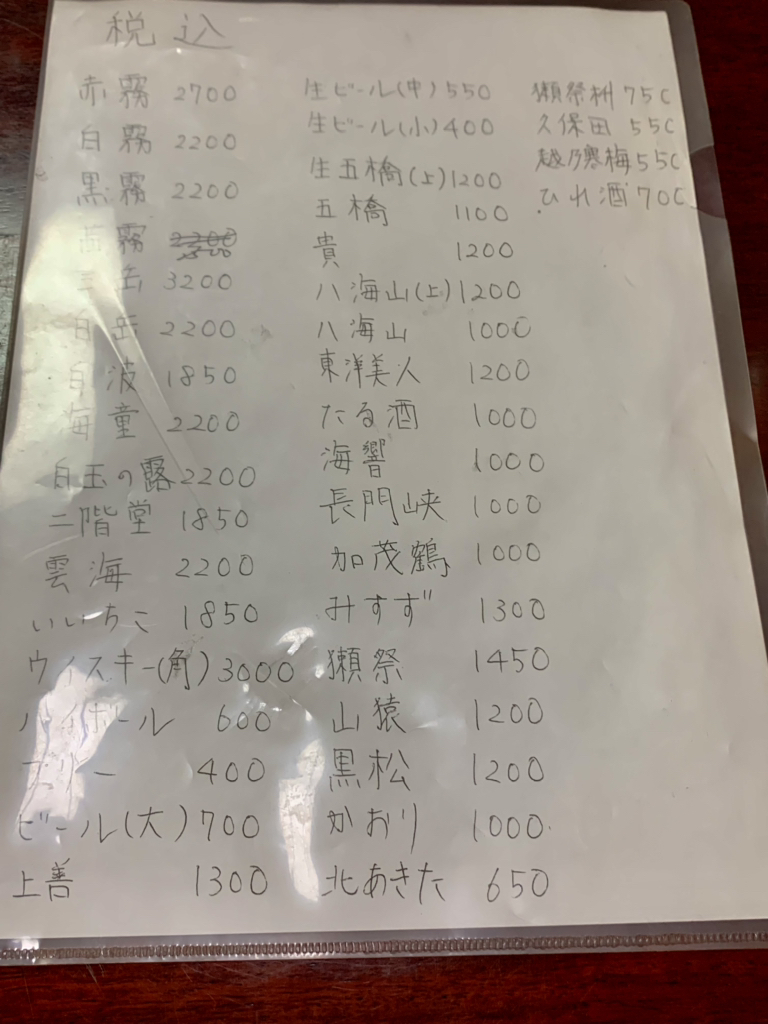 税込
赤霧 2700
白霧 2200
黒霧 2200
茜霧
三岳 3200
白岳 2200
白波 1850
海童 2200
白玉の露 2200
二階堂 1850
雲海 2200
いいちこ 1850
ウィスキー(角) 3000
ハイボール 600
フリー 400
ビール(大) 700
上善 1300
生ビール(中) 550
生ビール(小) 400
生五橋(上) 1200
五橋 1100
貴 1200
八海山(上) 1200
八海山 1000
東洋美人 1200
たる酒 1000
海響 1000
長門峡 1000
加茂鶴 1000
みすず 1300
獺祭 1450
山猿 1200
黒松 1200
かおり 1000
北あきた 650
獺祭枡 750
久保田 550
越乃寒梅 550
ひれ酒 700